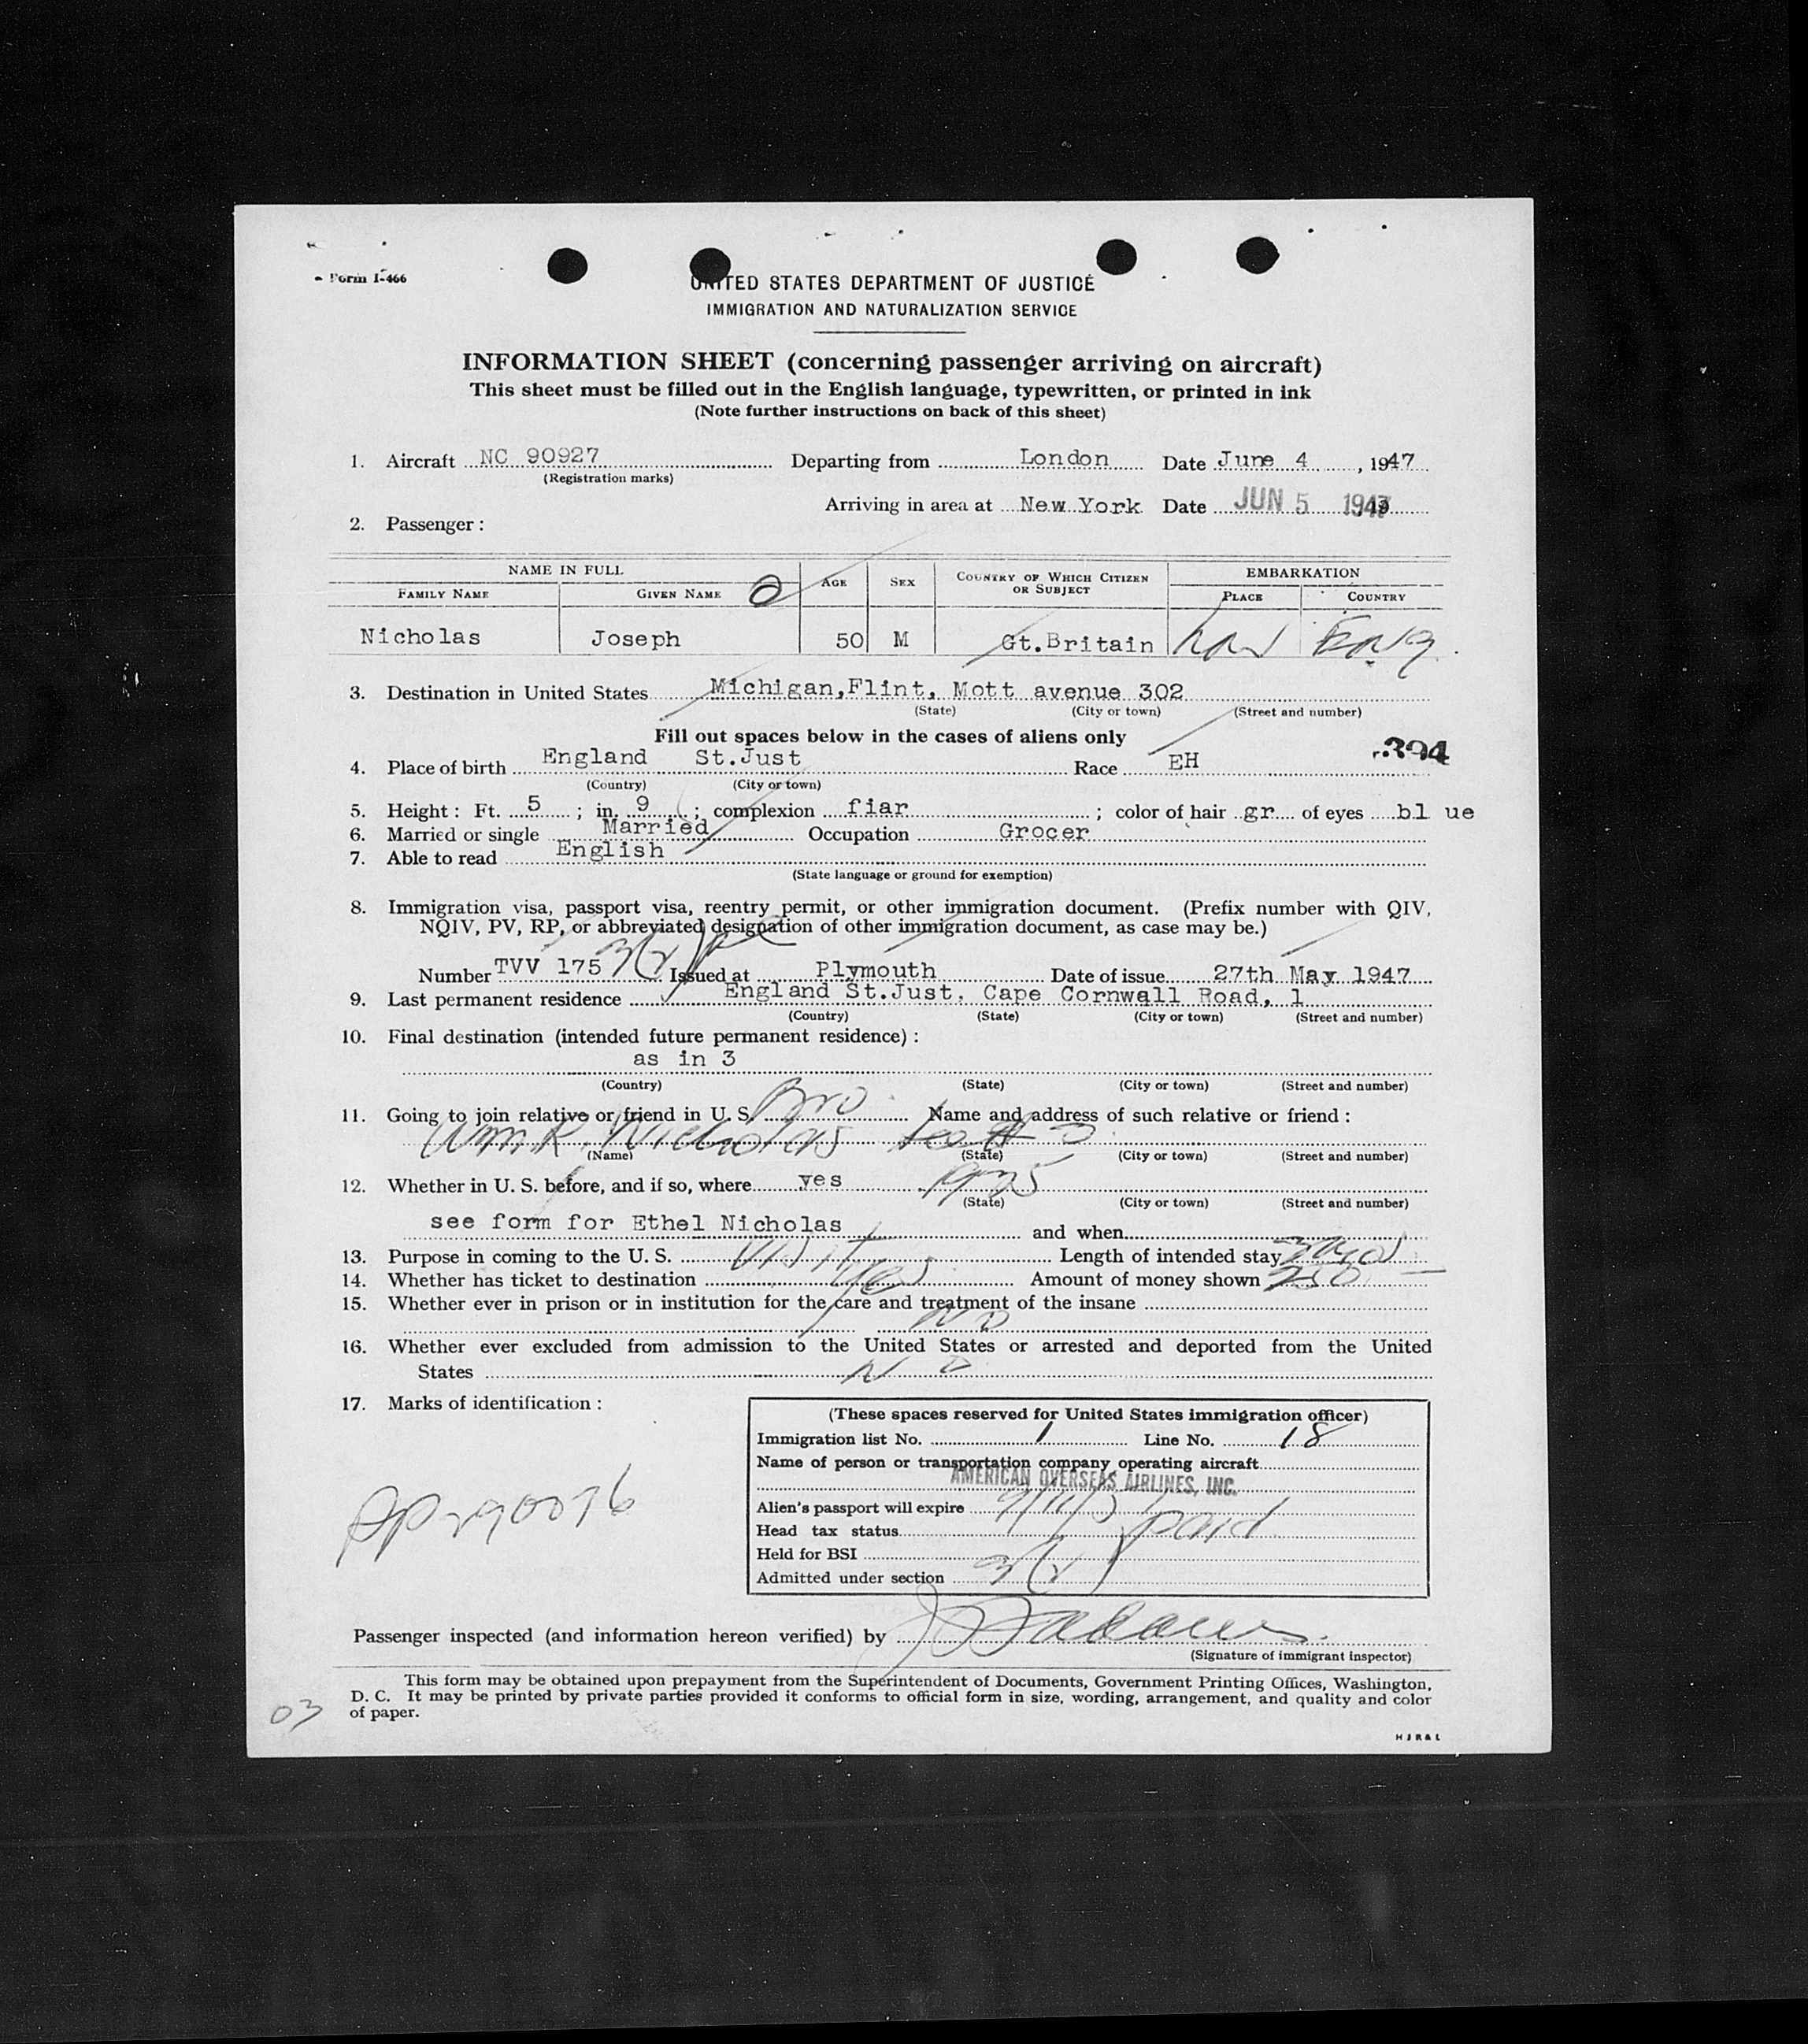 Form I-466
UNITED STATES DEPARTMENT OF JUSTICE
IMMIGRATION AND NATURALIZATION SERVICE
INFORMATION SHEET (concerning passenger arriving on aircraft)
This sheet must be filled out in the English language, typewritten, or printed in ink
(Note further instructions on back of this sheet)
1. Aircraft NC 90927 Departing from London Date June 4, 1947
(Registration marks)
Arriving in area at New York Date JUN 5 1947
2. Passenger:
NAME IN FULL AGE SEX COUNTRY OF WHICH CITIZEN OR SUBJECT EMBARKATION
FAMILY NAME GIVEN NAME PLACE COUNTRY
Nicholas Joseph 50 M Gt.Britain Lon Eng.
3. Destination in United States Michigan,Flint, Mott avenue 302
(State) (City or town) (Street and number)
Fill out spaces below in the cases of aliens only
394
4. Place of birth England St.Just Race EH
(Country) (City or town)
5. Height: Ft. 5; in. 9; complexion fiar; color of hair gr of eyes bl ue
6. Married or single Married Occupation Grocer
7. Able to read English
(State language or ground for exemption)
8. Immigration visa, passport visa, reentry permit, or other immigration document. (Prefix number with QIV,
NQIV, PV, RP, or abbreviated designation of other immigration document, as case may be.)
Number TVV 175 3(2) Issued at Plymouth Date of issue 27th May 1947
9. Last permanent residence England St.Just, Cape Cornwall Road, 1
(Country) (State) (City or town) (Street and number)
10. Final destination (intended future permanent residence):
as in 3
(Country) (State) (City or town) (Street and number)
11. Going to join relative or friend in U. S. Bro Name and address of such relative or friend:
Wm R. Nicholas # 3
(Name) (State) (City or town) (Street and number)
12. Whether in U. S. before, and if so, where yes 1925
(State) (City or town) (Street and number)
see form for Ethel Nicholas and when
13. Purpose in coming to the U. S. Visit Length of intended stay 3 mos
14. Whether has ticket to destination yes Amount of money shown 250 —
15. Whether ever in prison or in institution for the care and treatment of the insane
No
16. Whether ever excluded from admission to the United States or arrested and deported from the United
States No
17. Marks of identification:
(These spaces reserved for United States immigration officer)
Immigration list No. 1 Line No. 18
Name of person or transportation company operating aircraft
AMERICAN OVERSEAS AIRLINES, INC.
Alien's passport will expire
Head tax status paid
Held for BSI
Admitted under section 3(2)
Passenger inspected (and information hereon verified) by
(Signature of immigrant inspector)
This form may be obtained upon prepayment from the Superintendent of Documents, Government Printing Offices, Washington,
D. C. It may be printed by private parties provided it conforms to official form in size, wording, arrangement, and quality and color
of paper.
03
H J R & L